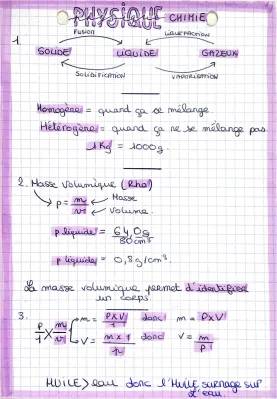 PHYSIQUE CHIMIE
1.
Fusion LIQUEFACTION
SOLIDE LIQUIDE GAZEUX
SOLIDIFICATION VAPORISATION
Homogène = quand ça se mélange.
Hétérogène = quand ça ne se mélange pas
1 Kg = 1000g.
2. Masse volumique (Rho)
ρ = m/v Masse
Volume.
ρ liquide = 64,0g / 80cm³
ρ liquide = 0,8g/cm³.
La masse volumique permet d'identifier
un corps.
3. ρ/1 X m/v m = ρXV/1 donc m = ρXV
V = m x 1/ρ donc V = m/ρ
HUILE > eau donc l'HUILE surnage sur
l'eau.